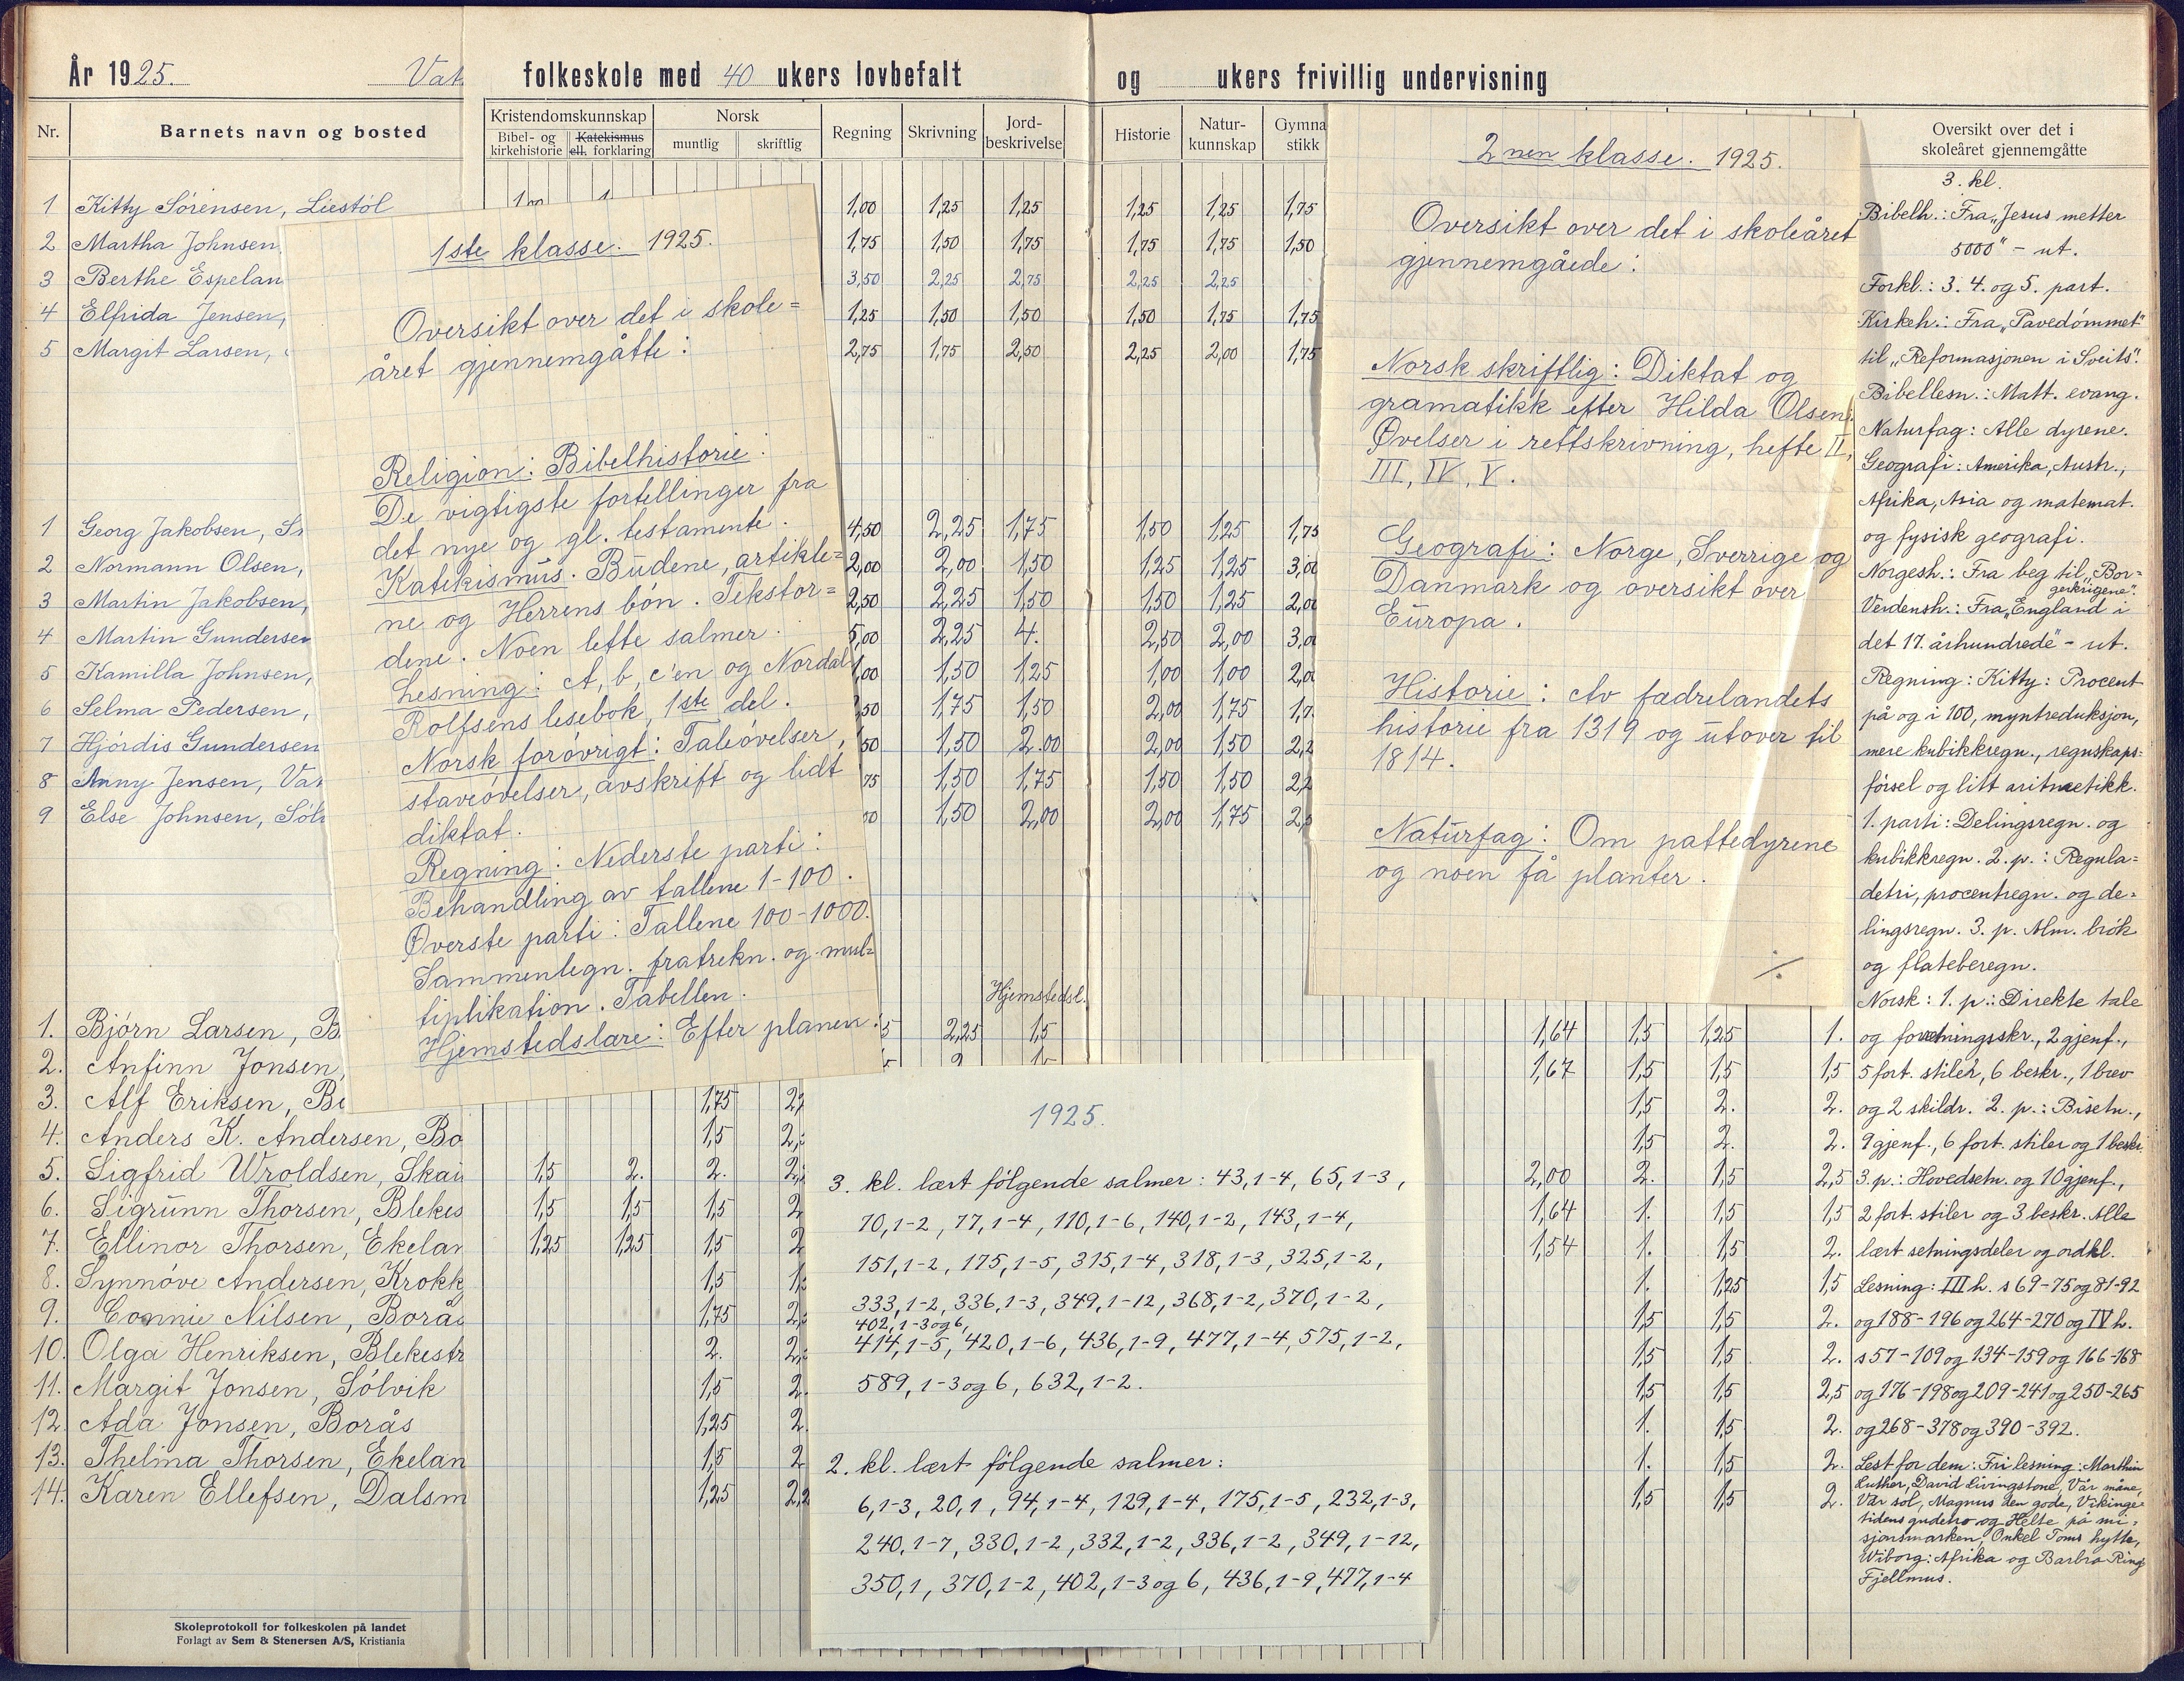 År 1925. folkeskole med 40 ukers lovbefalt og ukers frivillig undervisning
Nr. Barnets navn og bosted
Kristendomskunnskap Norsk Regning Skrivning Jord-beskrivelse Historie Natur-kunnskap Gymna stikk
Bibel- og kirkehistorie Katekismus ell. forklaring muntlig skriftlig
Oversikt over det i
skoleåret gjennemgåtte
1 Kitty Sørensen, Liestöl 1,00 1,25 1,25 1,25 1,25 1,75
2 Martha Johnsen, 1,75 1,50 1,75 1,75 1,75 1,50
3 Berthe Espelan 3,50 2,25 2,75 2,25 2,25
4 Elfrida Jensen, 1,25 1,50 1,50 1,50 1,75 1,75
5 Margit Larsen, 2,75 1,75 2,50 2,25 2,00 1,75
1 Georg Jakobsen, 4,50 2,25 1,75 1,50 1,25 1,75
2 Normann Olsen, 2,00 2,00 1,50 1,25 1,25 3,00
3 Martin Jakobsen, 2,50 2,25 1,50 1,50 1,25 2,00
4 Martin Gundersen 5,00 2,25 4. 2,50 2,00 3,00
5 Kamilla Johnsen, 1,00 1,50 1,25 1,00 1,00 2,0
6 Selma Pedersen, 50 1,75 1,50 2,00 1,75 1,7
7 Hjórdis Gundersen 50 1,50 2.00 2,00 1,50 2,2
8 Anny Jensen, Vat 75 1,50 1,75 1,50 1,50 2,2
9 Else Johnsen, Söl 1,50 2,00 2,00 1,75
Hjemstedsl.
1. Bjórn Larsen, B 5 2,25 1,5 1,64 1,5 1,25 1.
2. Anfinn Jonsen, 1,67 1,5 1,5 1,5
3. Alf Eriksen, B 1,75 1,5 2. 2.
4. Anders K. Andersen, Bo 1,5 1,5 2. 2.
5. Sigfrid Wroldsen, Skai 1,5 2. 2. 2,00 2. 1,5 2,5
6. Sigrunn Thorsen, Blekes 1,5 1,5 1,5 2 1,64 1. 1,5 1,5
7. Ellinor Thorsen, Ekelan 1,25 1,25 1,5 2 1,54 1. 1,5 2.
8. Synnóve Andersen, Krokk 1,5 1. 1,25 1,5
9. Connie Nilsen, Borås 1,75 1,5 1,5 2.
10. Olga Henriksen, Blekestr 2. 1,5 1,5 2.
11. Margit Jonsen, Sólvik 1,5 2. 1,5 1,5 2,5
12. Ada Jonsen, Borås 1,25 2. 1. 1,5 2.
13. Thelma Thorsen, Ekelan 1,5 2 1. 1,5 2.
14. Karen Ellefsen, Dalsm 1,25 2,2 1,5 1,5 2.
Skoleprotokoll for folkeskolen på landet
Forlagt av Sem & Stenersen A/S, Kristiania
1ste klasse. 1925.
Oversikt over det i skole=
året gjennemgåtte:
Religion: Bibelhistorie:
De vigtigste fortellinger fra
det nye og gl. testamente.
Katekismus. Budene, artikle=
ne og Herrens bón. Tekstor=
dene. Noen lette salmer.
Lesning: A, b, c'en og Nordal
Rolfsens lesebok, 1ste del.
Norsk forøvrigt: Taleóvelser,
staveóvelser, avskrift og lidt
diktat.
Regning: Nederste parti:
Behandling av tallene 1-100.
Øverste parti: Tallene 100-1000.
Sammenlegn. fratrekn. og mul=
tiplikation. Tabellen.
Hjemstedslære: Efter planen.
2nen klasse. 1925.
Oversikt over det i skoleåret
gjennemgåede:
Norsk skriftlig: Diktat og
gramatikk efter Hilda Olsen:
Øvelser i rettskrivning, hefte II,
III, IV, V.
Geografi: Norge, Sverrige og
Danmark og oversikt over
Europa.
Historie: Av fædrelandets
historie fra 1319 og utover til
1814.
Naturfag: Om pattedyrene
og noen få planter.
1925.
3. kl. lært fólgende salmer: 43,1-4, 65,1-3,
70,1-2, 77,1-4, 110,1-6, 140,1-2, 143,1-4,
151,1-2, 175,1-5, 315,1-4, 318,1-3, 325,1-2,
333,1-2, 336,1-3, 349,1-12, 368,1-2, 370,1-2,
402, 1-3 og 6,
414,1-5, 420,1-6, 436,1-9, 477,1-4, 575,1-2,
589, 1-3 og 6, 632, 1-2.
2. kl. lært fólgende salmer:
6,1-3, 20,1, 94,1-4, 129,1-4, 175,1-5, 232,1-3,
240,1-7, 330,1-2, 332,1-2, 336,1-2, 349,1-12,
350,1, 370,1-2, 402,1-3 og 6, 436,1-9, 477,1-4
3. kl.
Bibelh.: Fra „Jesus metter
5000" - ut.
Forkl.: 3. 4. og 5. part.
Kirkeh.: Fra „Pavedómmet"
til „Reformasjonen i Sveits".
Bibellesn.: Matt. evang.
Naturfag: Alle dyrene.
Geografi: Amerika, Austr.,
Afrika, Asia og matemat.
og fysisk geografi.
Norgesh.: Fra beg til „Bor=
gerkrigene".
Verdensh.: Fra „England i
det 17. århundrede" - ut.
Regning: Kitty: Procent
på og i 100, myntreduksjon,
mere kubikkregn., regnskaps=
fórsel og litt aritmetikk.
1. parti: Delingsregn. og
kubikkregn. 2. p.: Regula=
detri, procentregn. og de=
lingsregn. 3. p. Alm. brók
og flateberegn.
Norsk: 1. p.: Direkte tale
og forretningsskr., 2 gjenf.,
5 fort. stiler, 6 beskr., 1 brev
og 2 skildr. 2. p.: Bisetn.,
9 gjenf., 6 fort. stiler og 1 beskr.
3. p.: Hovedsetn. og 10 gjenf.,
2 fort. stiler og 3 beskr. Alle
lært setningsdeler og ordkl.
Lesning: III h. s 69-75 og 81-92
og 188-196 og 264-270 og IV h.
s 57-109 og 134-159 og 166-168
og 176-198 og 209-241 og 250-265
og 268-378 og 390-392.
Lest for dem: Fri lesning: Marthin
Luther, David Livingstone, Vår måne,
Vår sol, Magnus den gode, Vikinge=
tidens gudetro og Helte på mi=
sjonsmarken, Onkel Toms hytte,
Wiborg: Afrika og Barbra Ring
Fjellmus.